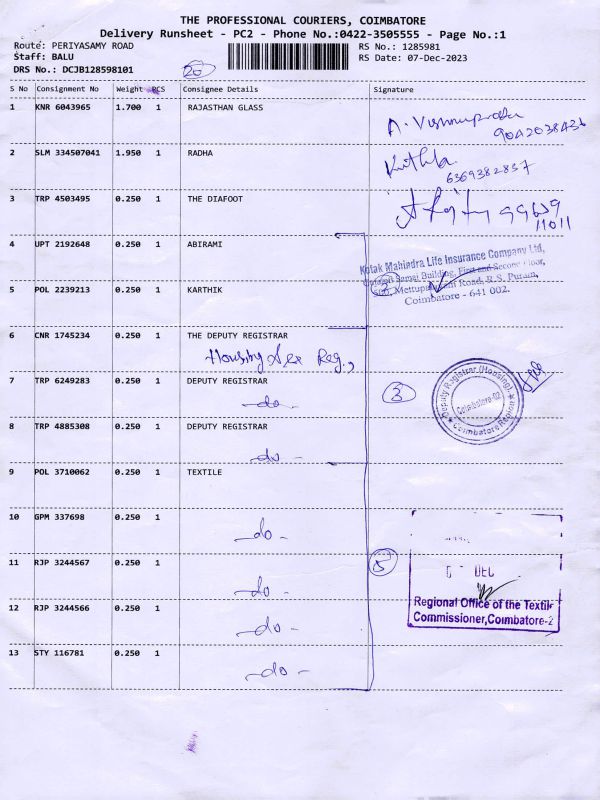 THE PROFESSIONAL COURIERS, COIMBATORE
Delivery Runsheet - PC2 - Phone No.:0422-3505555 - Page No.:1
Route: PERIYASAMY ROAD
RS No.: 1285981
Staff: BALU
RS Date: 07-Dec-2023
DRS No.: DCJB128598101
20
S No Consignment No Weight PCS Consignee Details Signature
1 KNR 6043965 1.700 1 RAJASTHAN GLASS
9042038436
2 SLM 334507041 1.950 1 RADHA
6369382837
3 TRP 4503495 0.250 1 THE DIAFOOT
99659
11011
4 UPT 2192648 0.250 1 ABIRAMI
Kotak Mahindra Life Insurance Company Ltd,
Building, First and Second Floor,
Road, R.S. Puram,
Coimbatore - 641 002.
5 POL 2239213 0.250 1 KARTHIK
6 CNR 1745234 0.250 1 THE DEPUTY REGISTRAR
Housing Reg.,
7 TRP 6249283 0.250 1 DEPUTY REGISTRAR
-do-
3
Deputy Registrar (Housing)
Coimbatore-02
Coimbatore Region
8 TRP 4885308 0.250 1 DEPUTY REGISTRAR
-do-
9 POL 3710062 0.250 1 TEXTILE
10 GPM 337698 0.250 1
-do-
11 RJP 3244567 0.250 1
-do-
5
DEC
12 RJP 3244566 0.250 1
-do-
Regional Office of the Textile
Commissioner,Coimbatore-2
13 STY 116781 0.250 1
-do-